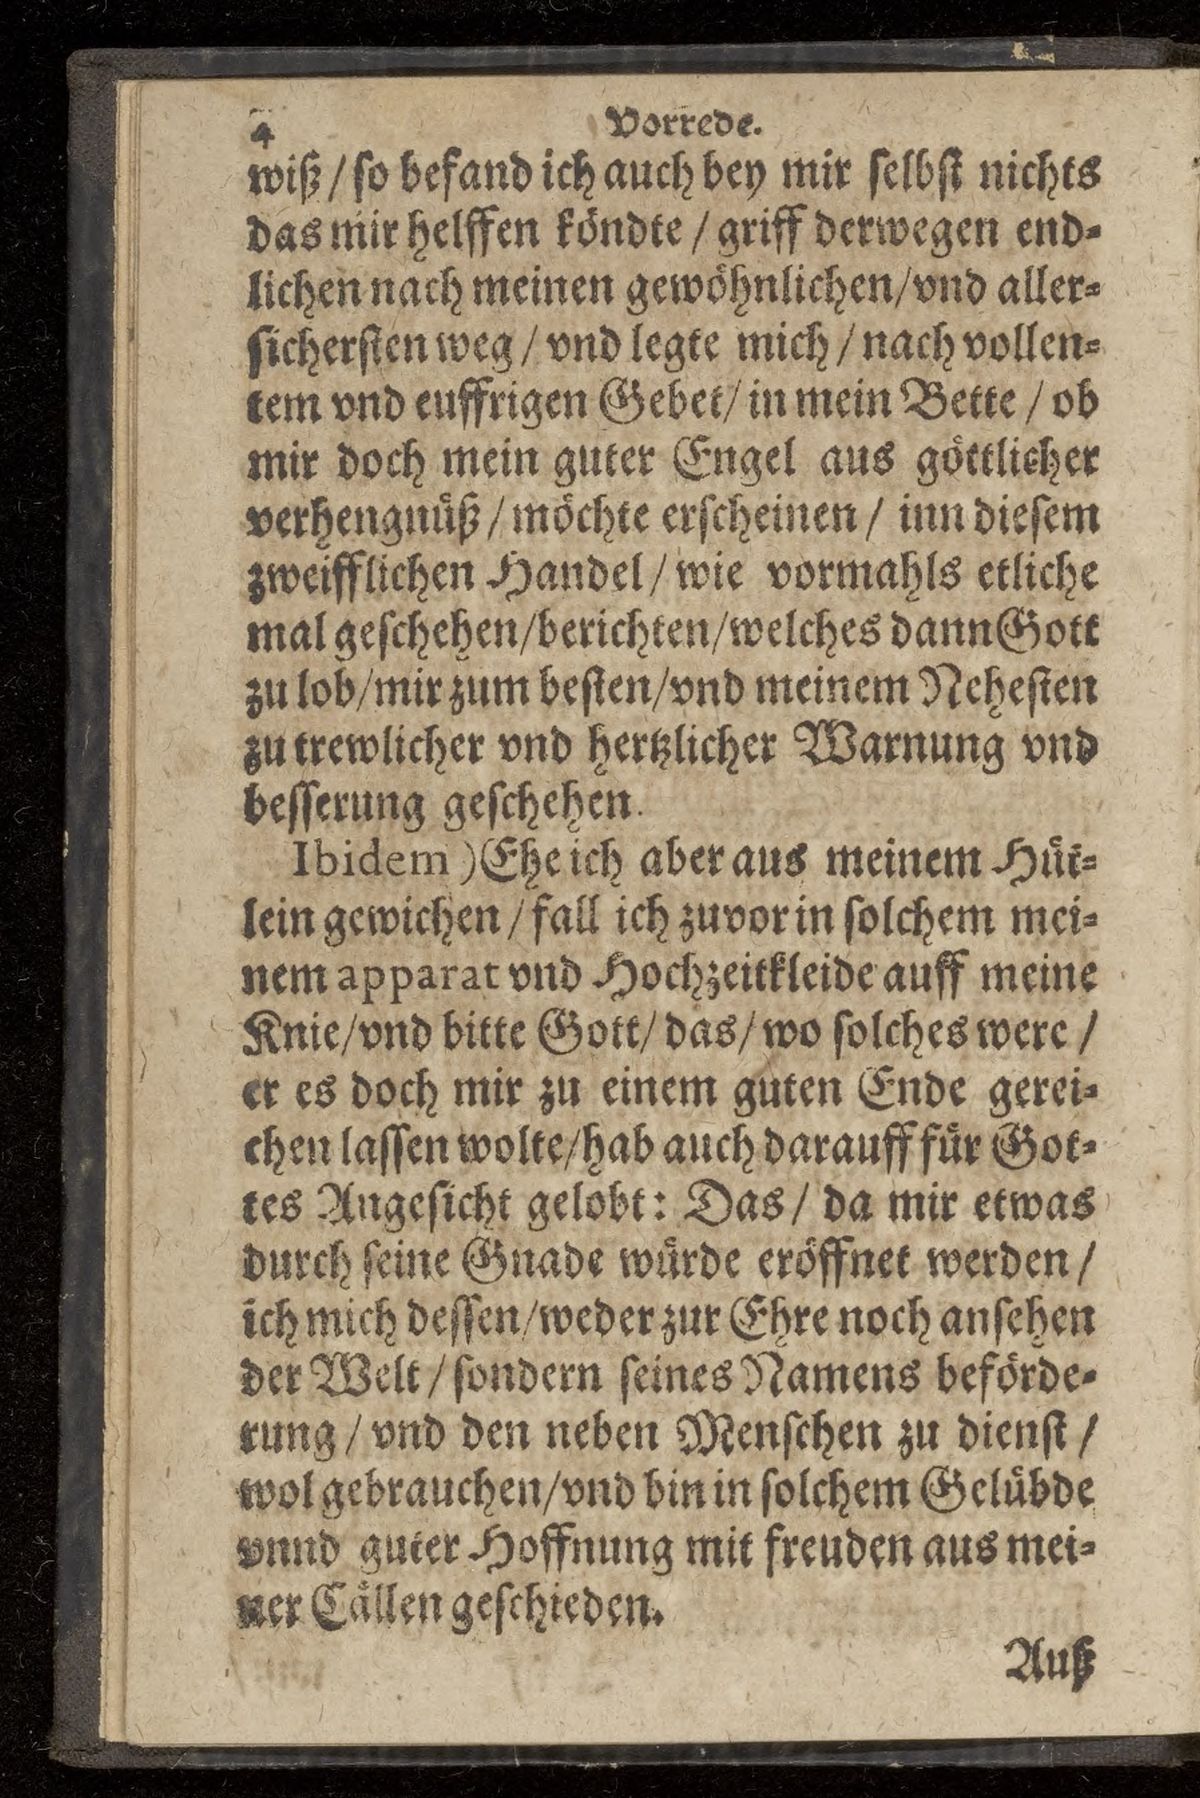 4 Vorrede.
wiß / so befand ich auch bey mir selbst nichts
das mir helffen köndte / griff derwegen end-
lichen nach meinen gewöhnlichen/vnd aller-
sichersten weg / vnd legte mich / nach vollen-
tem vnd euffrigen Gebet/ in mein Bette / ob
mir doch mein guter Engel aus göttlicher
verhengnüß / möchte erscheinen / inn diesem
zweifflichen Handel / wie vormahls etliche
mal geschehen/berichten/welches dann Gott
zu lob/mir zum besten/vnd meinem Nehesten
zu trewlicher vnd hertzlicher Warnung vnd
besserung geschehen.
Ibidem ) Ehe ich aber aus meinem Hüt-
lein gewichen / fall ich zuvor in solchem mei-
nem apparat vnd Hochzeitkleide auff meine
Knie/vnd bitte Gott/ das/ wo solches were /
er es doch mir zu einem guten Ende gerei-
chen lassen wolte/hab auch darauff für Got-
tes Angesicht gelobt: Das / da mir etwas
durch seine Gnade würde eröffnet werden /
ich mich dessen/weder zur Ehre noch ansehen
der Welt / sondern seines Namens beförde-
rung / vnd den neben Menschen zu dienst /
wol gebrauchen/vnd bin in solchem Gelübde
vnnd guter Hoffnung mit freuden aus mei-
ner Cällen geschieden.
Auß